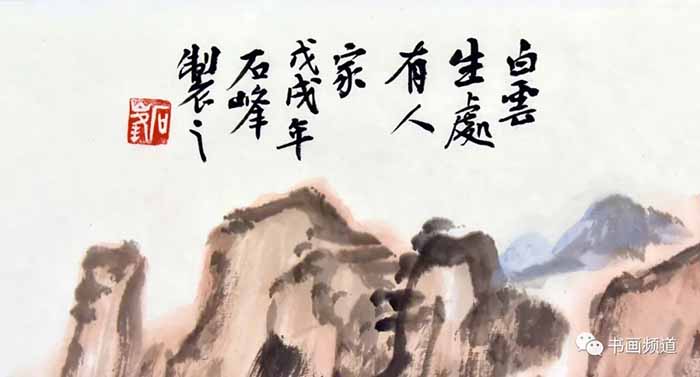 白雲
生處
有人
家
戊戌年
石峰
製之
石峯
书画频道